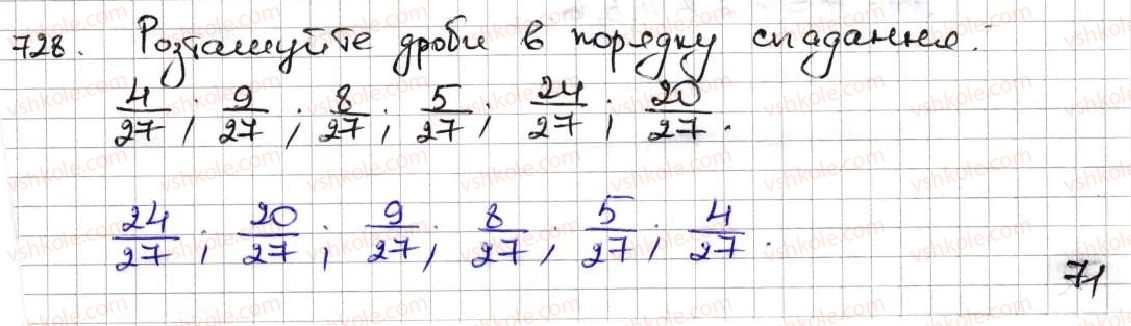 728. Розташуйте дроби в порядку спадання.
4/27; 9/27; 8/27; 5/27; 24/27; 20/27.
24/27; 20/27; 9/27; 8/27; 5/27; 4/27.
71